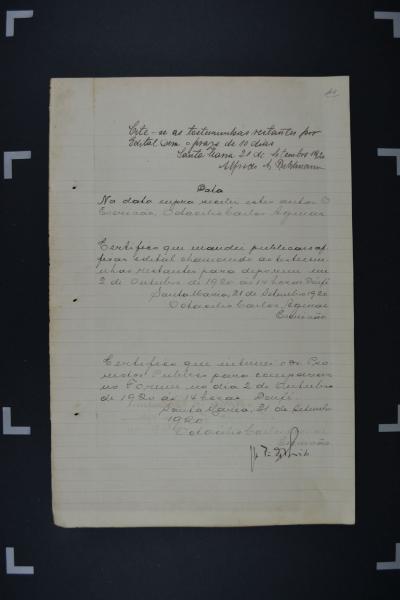 Cite-se as testemunhas restantes por
Edital com o prazo de 10 dias
Santa Maria 21 de Setembro 1920
Alfredo
Data
Na data supra recebi estes autos O
Escrivão, Octacilio Carlos Aguiar
Certifico que mandei publicar e af-
fixar edital chamando as testemu-
nhas restantes para deporem em
2 de Outubro de 1920 ás 14 horas. Doufé
Santa Maria, 21 de Setembro 1920
Octacilio Carlos Aguiar
Escrivão
Certifico que intimei o Dr. Pro-
motor Publico para comparecer
no Forum no dia 2 de Outubro
de 1920 ás 14 horas. Doufé.
Santa Maria, 21 de Setembro
1920
Octacilio Carlos
Escrivão